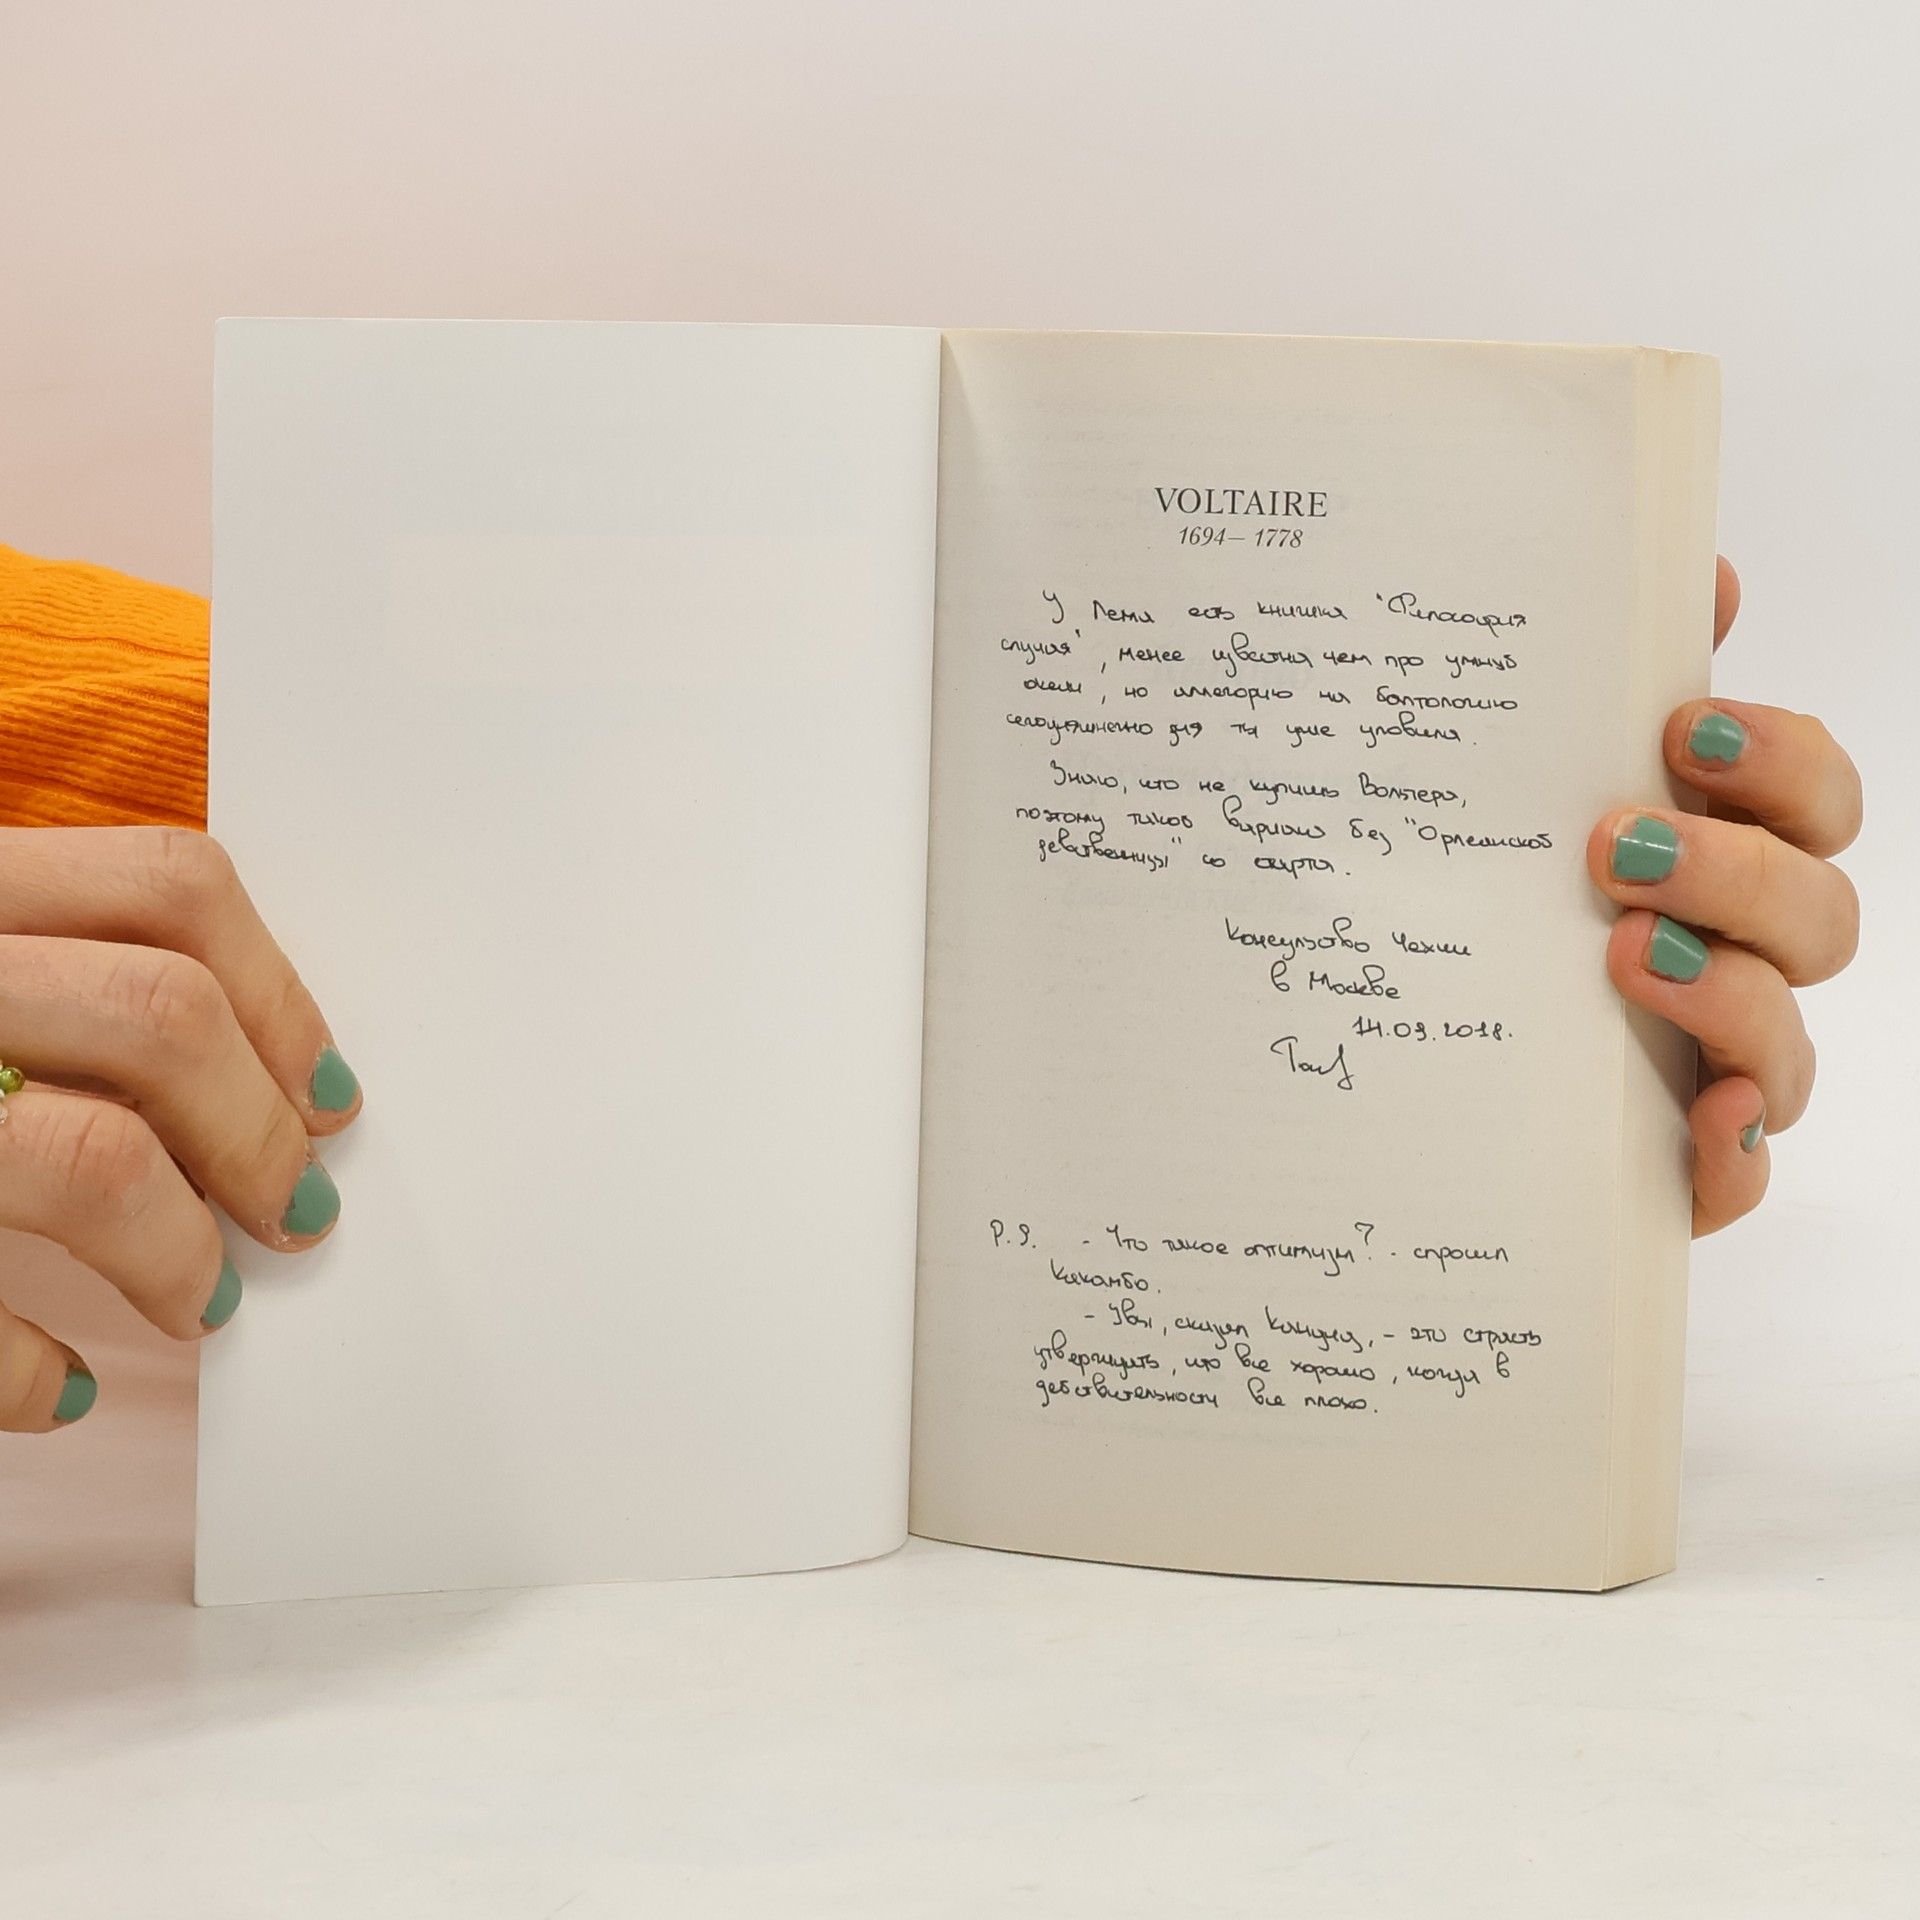 VOLTAIRE
1694– 1778
У Лема есть книжка "Философия
случая", менее известна чем про умный
океан, но аллегорию на болтологию
сегодняшнего дня ты уже уловила.
Знаю, что не купишь Вольтера,
поэтому такой вариант без "Орлеанской
девственницы" со старта.
Консульство Чехии
в Москве
14.03.2018.
P.S. - Что такое оптимизм? - спросил
Какамбо.
- Увы, сказал Кандид, - это страсть
утверждать, что все хорошо, когда в
действительности все плохо.